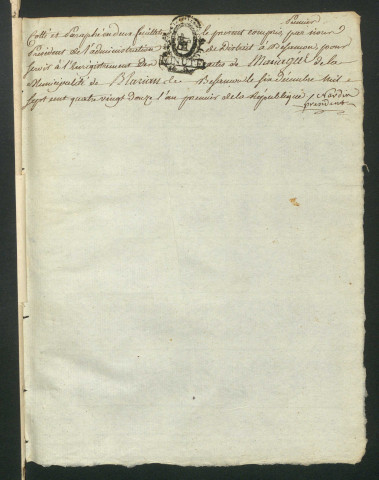 premier
Cotté et Paraphé en deux feuillets le present compris par nous
President de l'administration du District de Besancon, pour
servir à l'Enregistrement des actes de Mariages de la
Municipalité de Blarians Besancon le six décembre mil
Sept cent quatre vingt douze l'an premier de la république
president